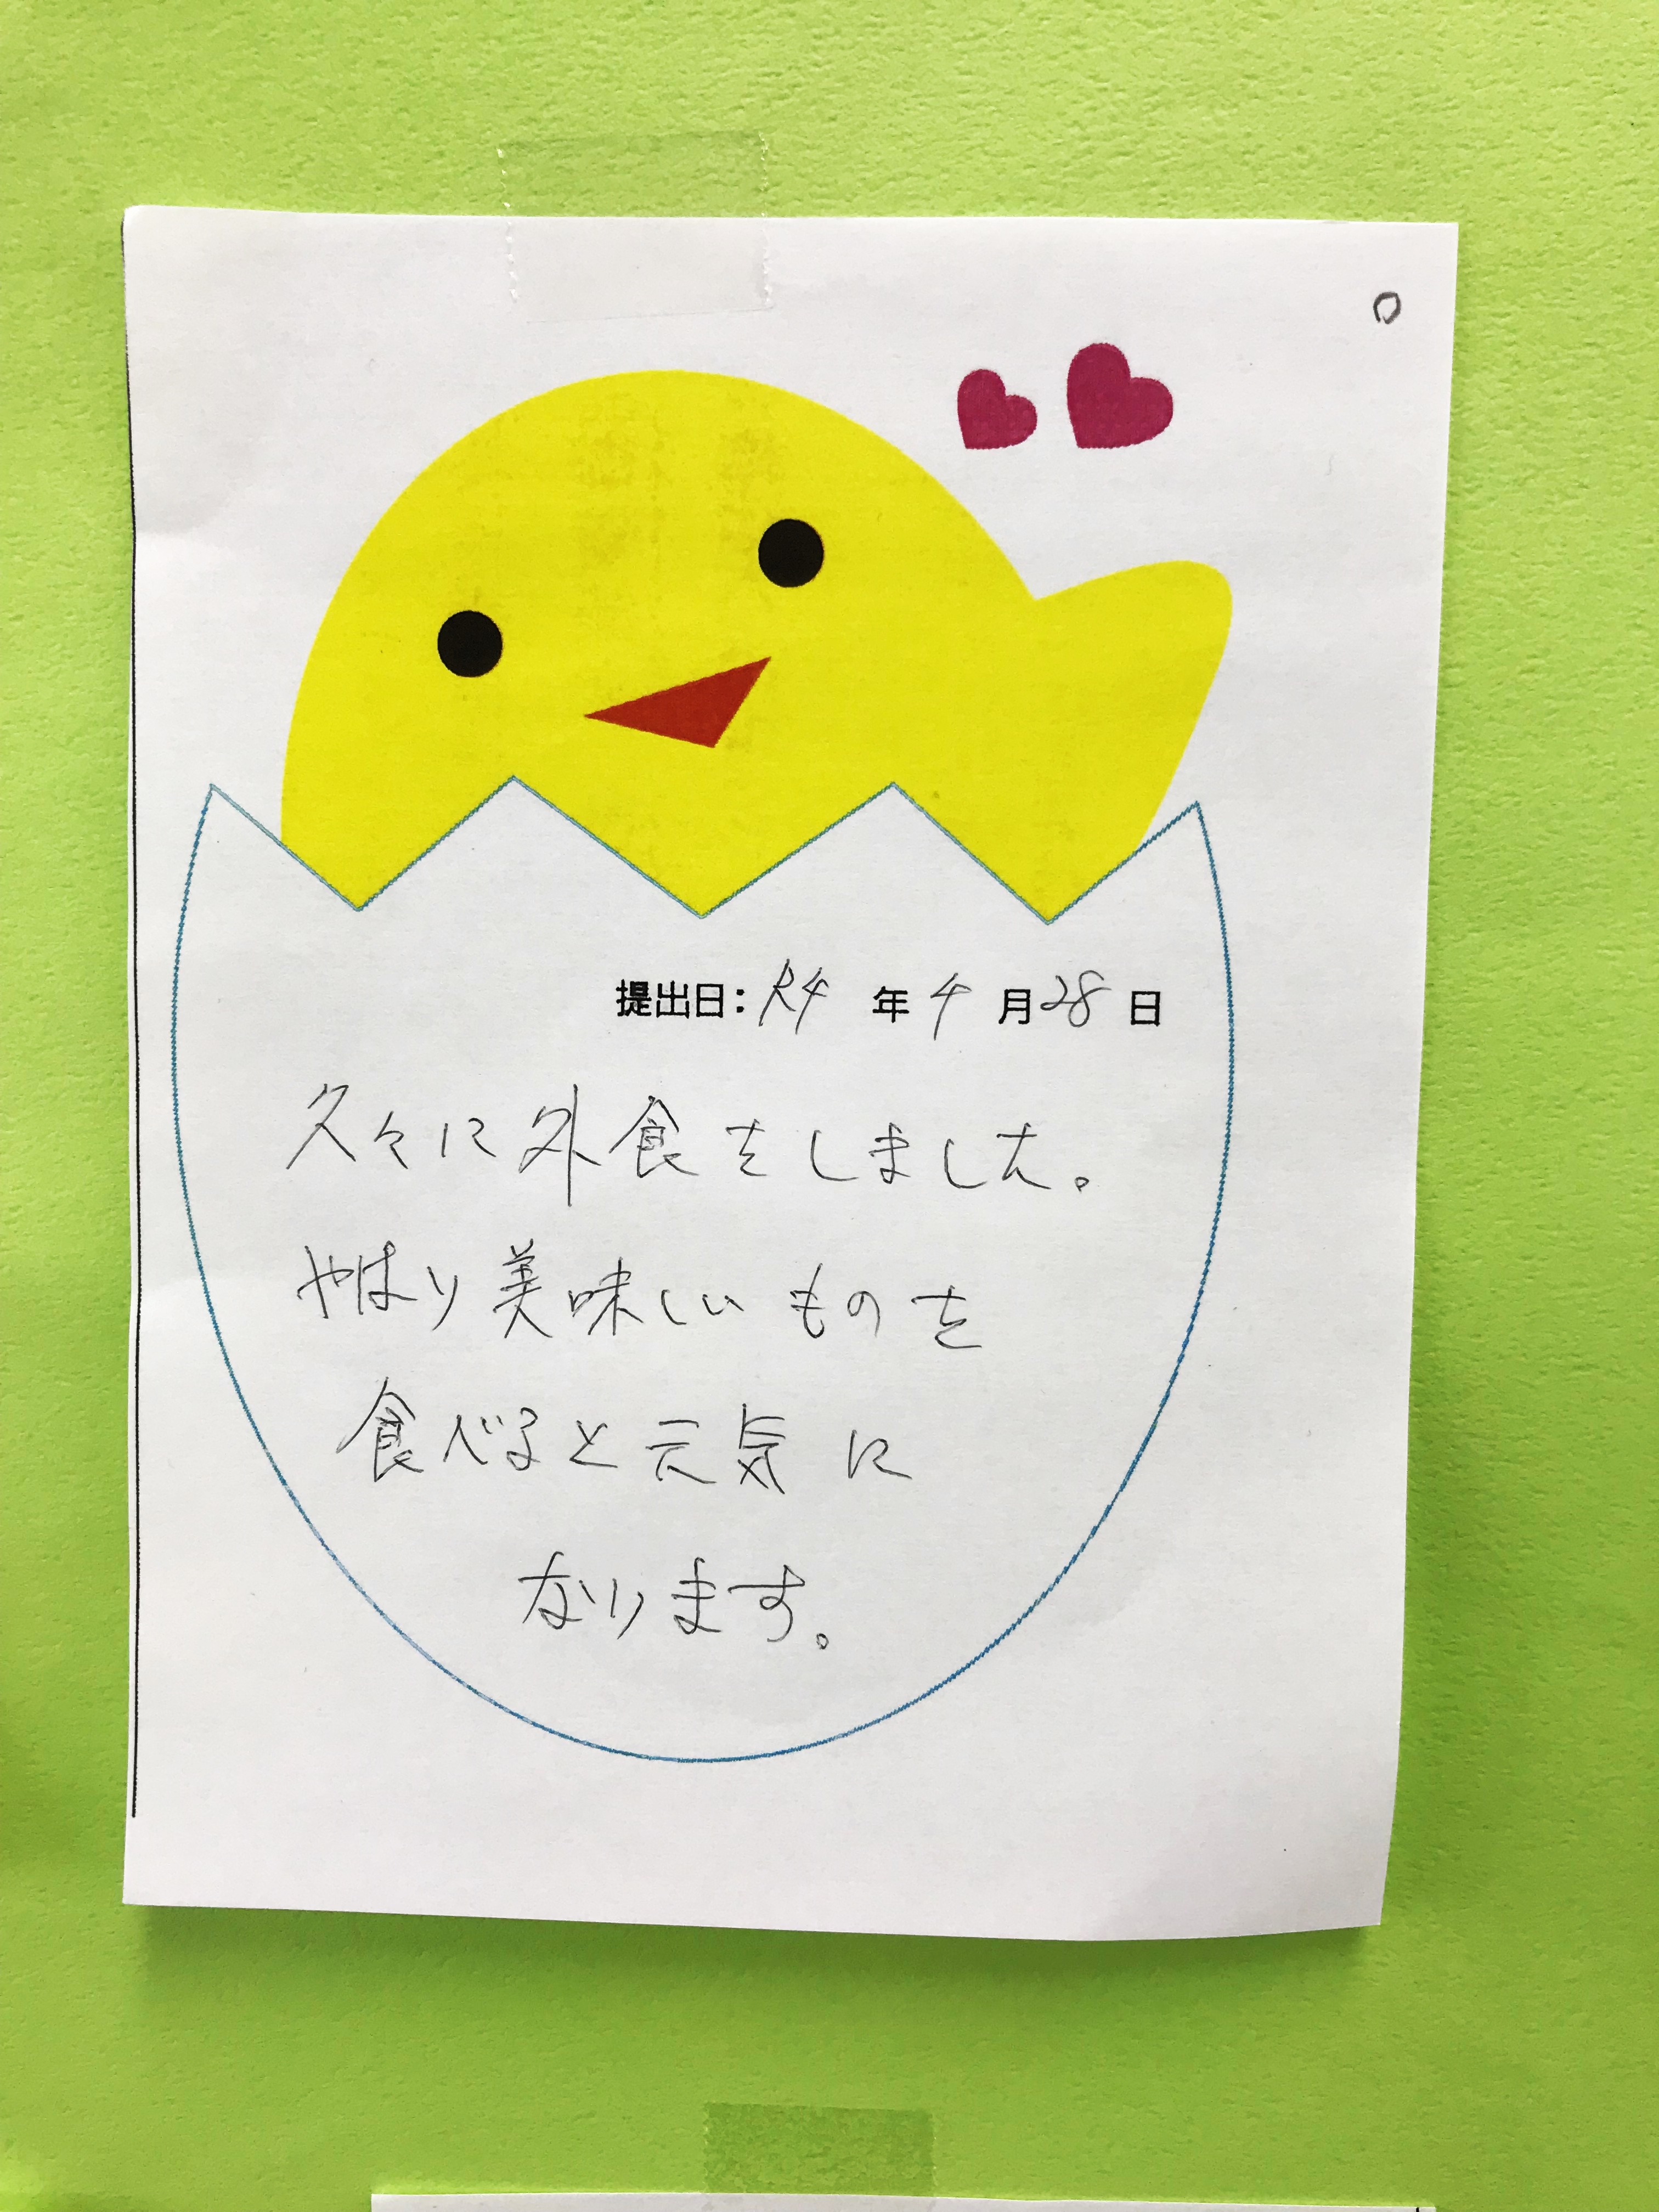 提出日：R4年4月28日
久々に外食をしました。
やはり美味しいものを
食べると元気に
なります。